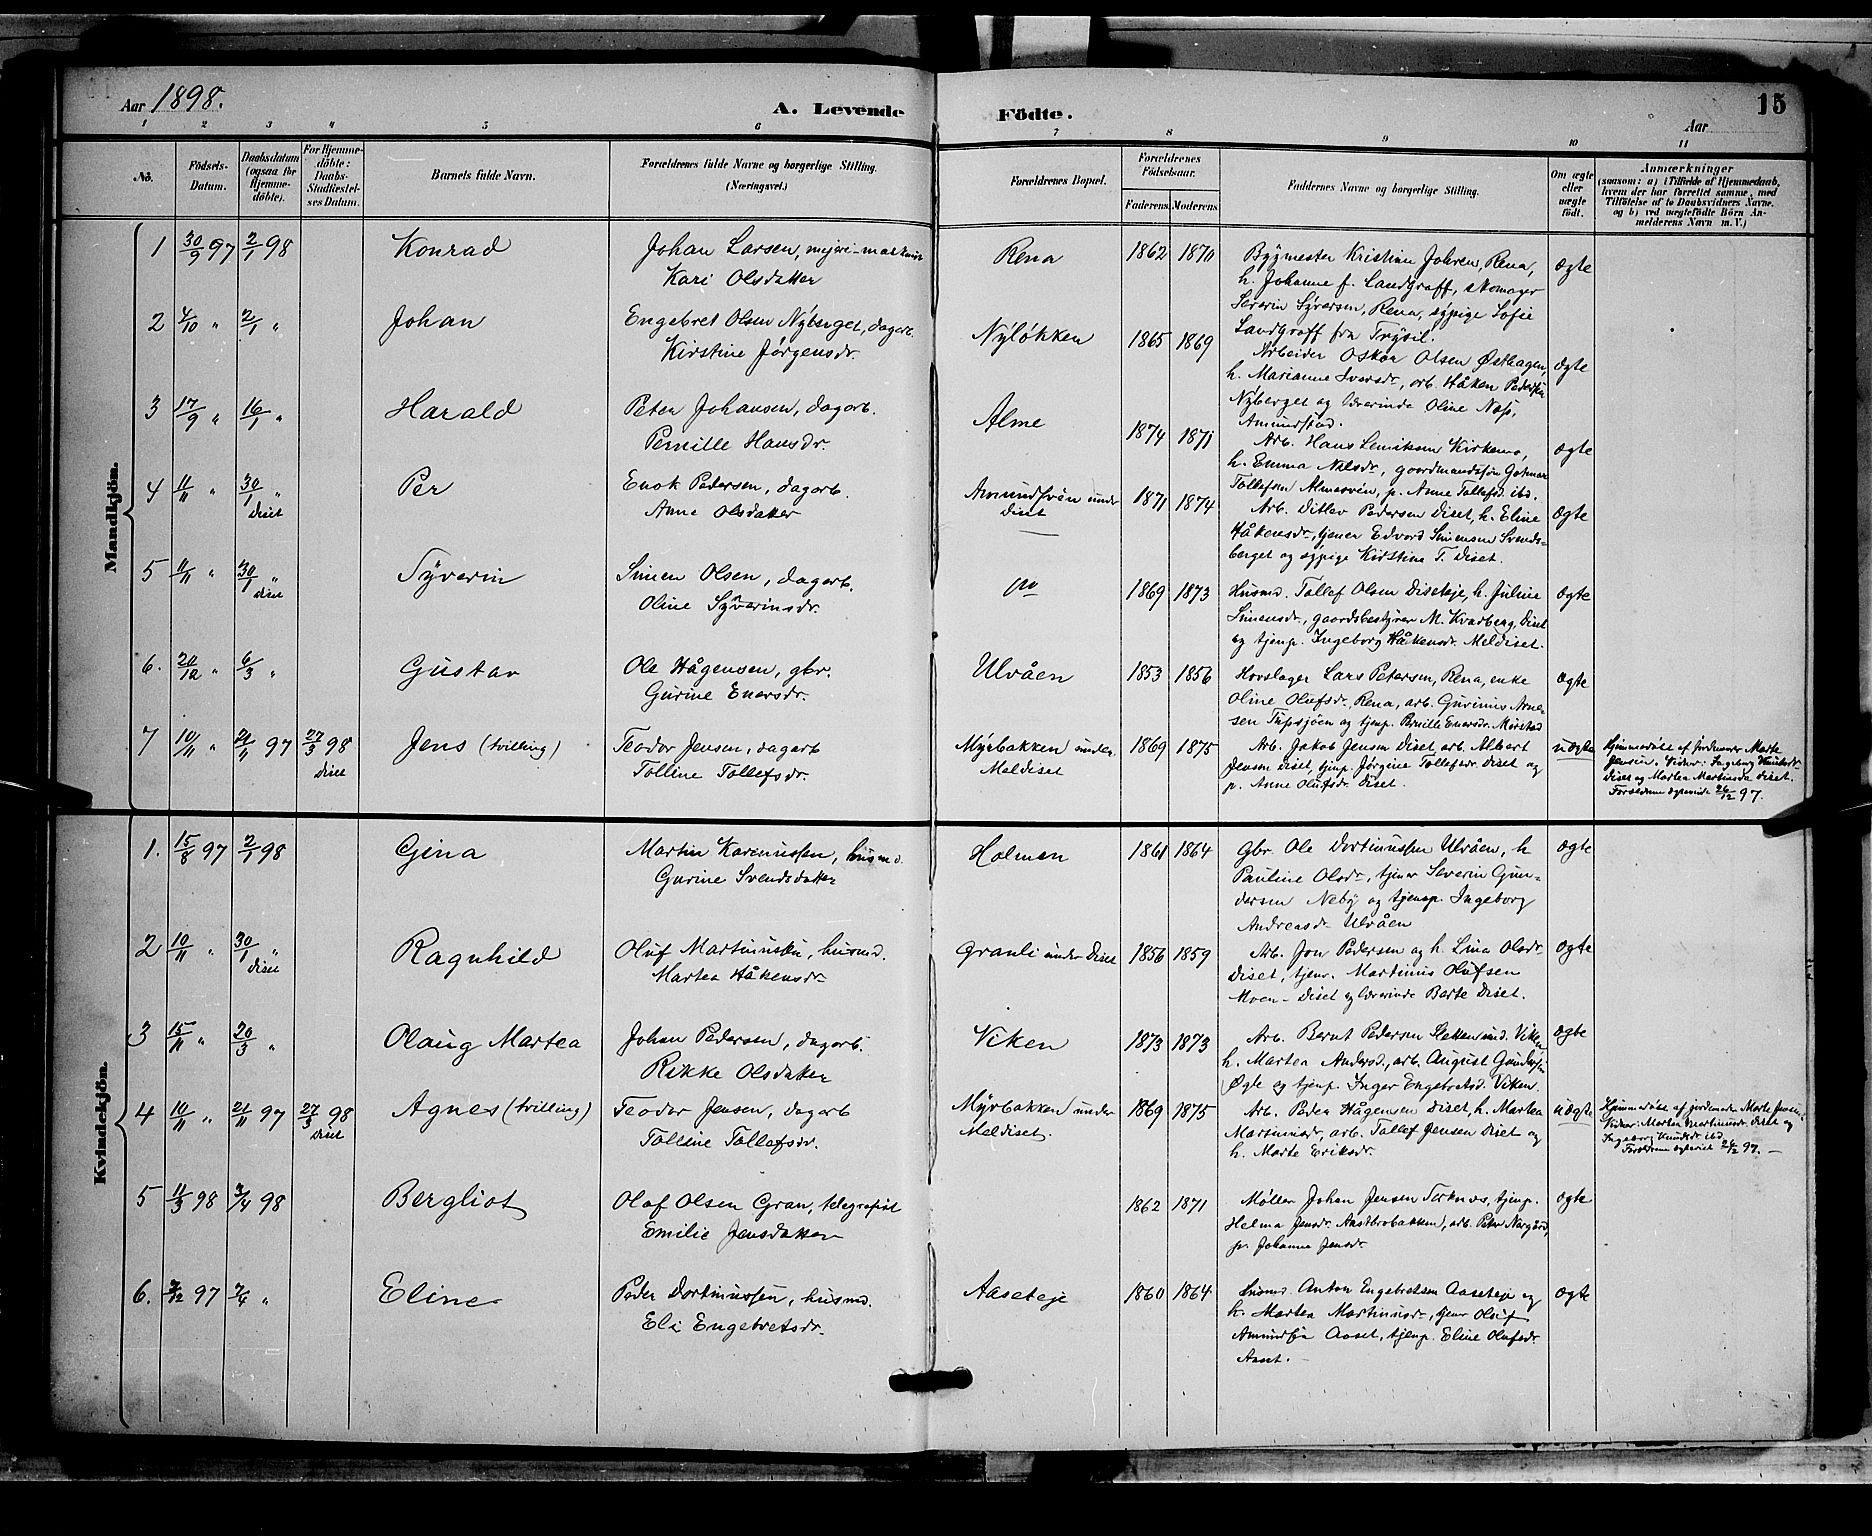 Aar 1898.
A. Levende Födte.
15
Aar
1 2 3 4 5 6 7 8 9 10 11
No.
Födsels-Datum.
Daabsdatum (ogsaa for Hjemme-döbte).
For Hjemme-döbte: Daabs-Stadfæstel-ses Datum.
Barnets fulde Navn.
Forældrenes fulde Navne og borgerlige Stilling.
(Næringsvei.)
Forældrenes Bopæl.
Forældrenes Födselsaar.
Faderens. Moderens.
Faddernes Navne og borgerlige Stilling.
Om ægte eller uægte födt.
Anmærkninger
(saasom: a) i Tilfælde af Hjemmedaab,
hvem der har forrettet samme, med
Tilföielse af to Daabsvidners Navne.
og b) ved uægtefödte Börn An-
melderens Navn m. V.)
Mandkjön.
1 30/9 97 2/1 98 Konrad Johan Larsen, mejeri-maskinist
Kari Olsdatter
Rena 1862 1870 Bygmester Kristian Johren, Rena,
h. Johanne f. Landgraff, skomager
Severin Syversen, Rena, og pige Sofie
Landgraff fra Trysil.
ægte
2 4/10 " 2/1 " Johan Engebret Olsen Nyberget, dagarb.
Kirstine Jørgensdr.
Nyløkken 1865 1869 Arbeider Oskar Olsen Østhagen,
h. Marianne Iversdr., arb. Håken Pedersen
Nyberget og lærerinde Oline Næss,
Amundstad.
ægte
3 17/9 " 16/1 " Harald Peter Johansen, dagarb.
Pernille Hansdr.
Alme 1874 1871 Arb. Hans Lemiksen Kirkemo,
h. Emma Nilsdr., gaardmandssøn
Tollefsen Almesvén, p. Anne Tollefsd. ibd.
ægte
4 11/11 " 30/1 " Diset Per Enok Pedersen, dagarb.
Anne Olsdatter
Amundsvén under
Diset
1871 1874 Arb. Ditlev Pedersen Diset, h. Eline
Håkensdr., tjener Edvard Simensen Svends-
berget og pige Kirstine T. Diset.
ægte
5 11/11 " 30/1 " Diset Syverin Simen Olsen, dagarb.
Oline Syverinsdr.
do 1869 1873 Husmd. Tollef Olsen Diseteje, h. Juline
Simensdr., gaardsbestyrer M. Kvadberg, Diset
og tjenp. Ingeborg Håkensdr. Meldiset.
ægte
6. 20/12 " 6/3 " Gustav Ole Hågensen, gbr.
Gurine Enersdr.
Ulvåen 1853 1856 Hovslager Lars Petersen, Rena, enke
Oline Olufsdr., Rena, arb. Gurinius Arne-
sen Tupsjøen og tjenp. Pernille Enersdr. Mørstad
ægte
7 10/11 " 21/11 97 27/3 98 Diset Jens (tvilling) Teodor Jensen, dagarb.
Tolline Tollefsdr.
Myrbakken under
Meldiset
1869 1875 Arb. Jakob Jensen Diset, arb. Albert
Jensen Diset, tjenp. Jørgine Tollefsdr. Diset og
p. Anne Olufsdr. Diset.
uægte
Hjemmedøbt af jordmoder Marte
Jensen. Vidner: Ingeborg Knutsdr.
Diset og Martea Martinusdr. Diset.
Forældrene ægteviede 26/12 97.
Kvindekjön.
1. 15/8 97 2/1 98 Gina Martin Karenussen, husmd.
Gurine Svendsdatter
Holmen 1861 1864 Gbr. Ole Dortinussen Ulvåen, h.
Pauline Olsdr., tjener Severin Gun-
dersen Neby og tjenp. Ingeborg
Andreasdr. Ulvåen
ægte
2 10/11 " 30/1 " Diset Ragnhild Oluf Martinussen, husmd.
Martea Håkensdr.
Granli under Diset 1856 1859 Arb. Jon Pedersen og h. Lina Olsdr.
Diset, tjenr. Martinus Olufsen
Moen - Diset og lærerinde Berte Diset.
ægte
3 15/11 " 20/3 " Olaug Martea Johan Pedersen, dagarb.
Rikke Olsdatter
Viken 1873 1873 Arb. Bernt Pedersen und. Viken,
h. Martea Andersd., arb. August Gundersen
Øgle og tjenp. Inger Engebretsd. Viken.
ægte
4 10/11 " 21/11 97 27/3 98 Diset Agnes (tvilling) Teodor Jensen, dagarb.
Tolline Tollefsdr.
Myrbakken under
Meldiset.
1869 1875 Arb. Peder Hågensen Diset, h. Martea
Martinusdr., arb. Tollef Jensen Diset og
h. Marte Eriksdr.
uægte
Hjemmedøbt af jordmoder Marte Jensen.
Vidner: Martea Martinusdr. Diset og
Ingeborg Knudsdr. ibd.
Forældrene ægteviet 26/12 97. -
5 11/3 98 3/4 98 Bergliot Olof Olsen Gran, telegrafist
Emilie Jensdatter
1862 1871 Møller Johan Jensen Torknes, tjenp.
Helma Jensdr. Aastbrobakken, arb. Peter Norgård,
p. Johanna Jensdr.
ægte
6. 7/12 97 7/4 " Eline Peder Dortinussen, husmd.
Eli Engebretsdr.
Aaseteje 1860 1864 Husmd. Anton Engebretsen Aaseteje og
h. Martea Martinusdr., tjener Oluf
Amundsen Aaset, tjenp. Eline Olufsdr.
Aaset.
ægte